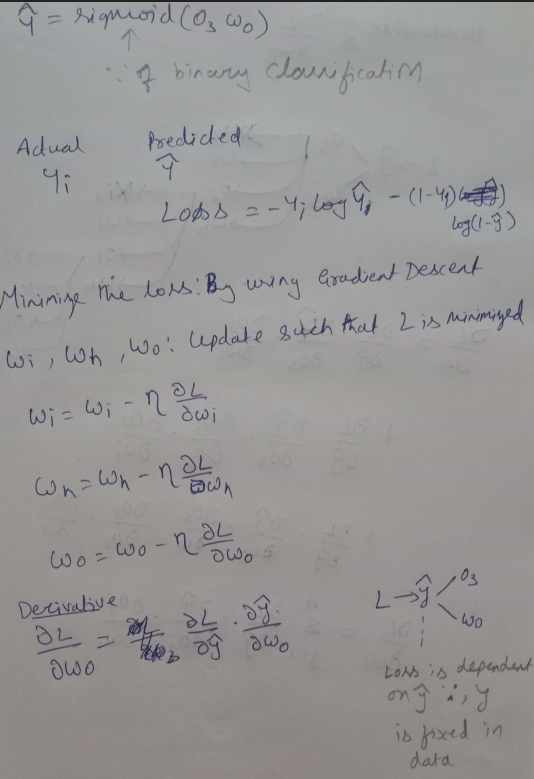 Ŷ = sigmoid(O₃ ω₀)
↑
∵ of binary classification
Actual Predicted
Yᵢ Ŷ
Loss = -Yᵢ log Ŷᵢ - (1-Yᵢ)
log(1-ŷ)
Minimize the loss: By using Gradient Descent
ωᵢ, ωₕ, ω₀: Update such that L is minimized
ωᵢ = ωᵢ - η ∂L/∂ωᵢ
ωₕ = ωₕ - η ∂L/∂ωₕ
ω₀ = ω₀ - η ∂L/∂ω₀
Derivative
∂L/∂ω₀ = ∂L/∂ŷ · ∂ŷ/∂ω₀
L → ŷ O₃
ω₀
Loss is dependent
on ŷ ∵, y
is fixed in
data